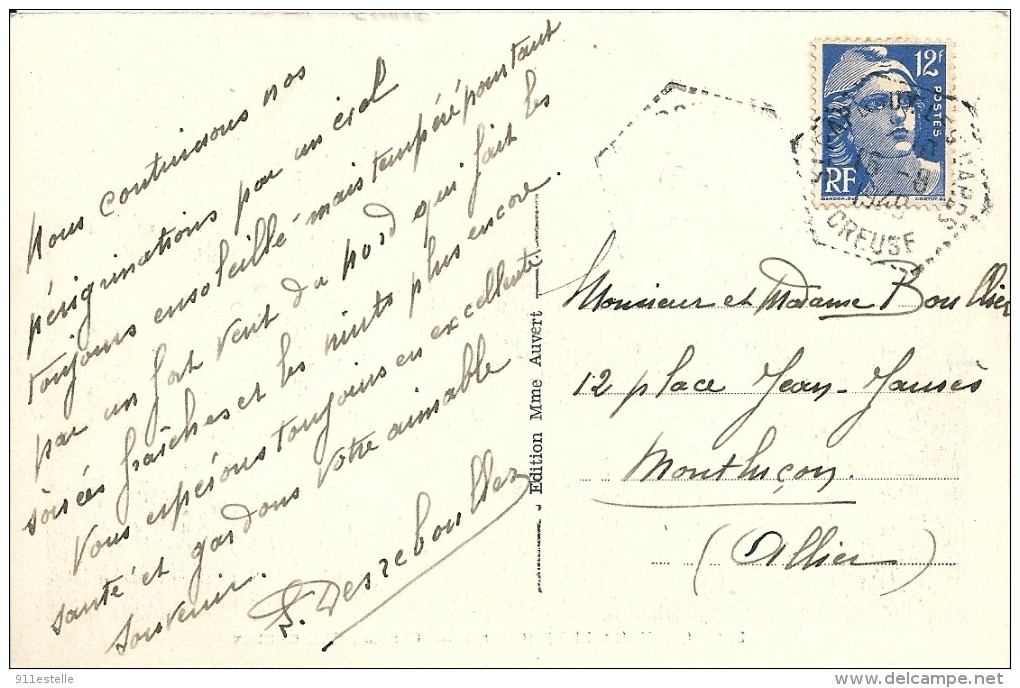 Nous continuons nos
pérégrinations par un ciel
toujours ensoleillé mais tempéré pourtant
par un fort vent du nord qui fait les
soirées fraîches et les nuits plus encore.
Vous espérons toujours en excellente
santé et gardons votre aimable
souvenir.
S. Desreboulles
Edition Mme Auvert
12F
POSTES
RF
16 -8
1949
CREUSE
Monsieur et Madame Boullier
12 place Jean-Jaurès
Montluçon.
(Allier)
911estelle
delcampe.net